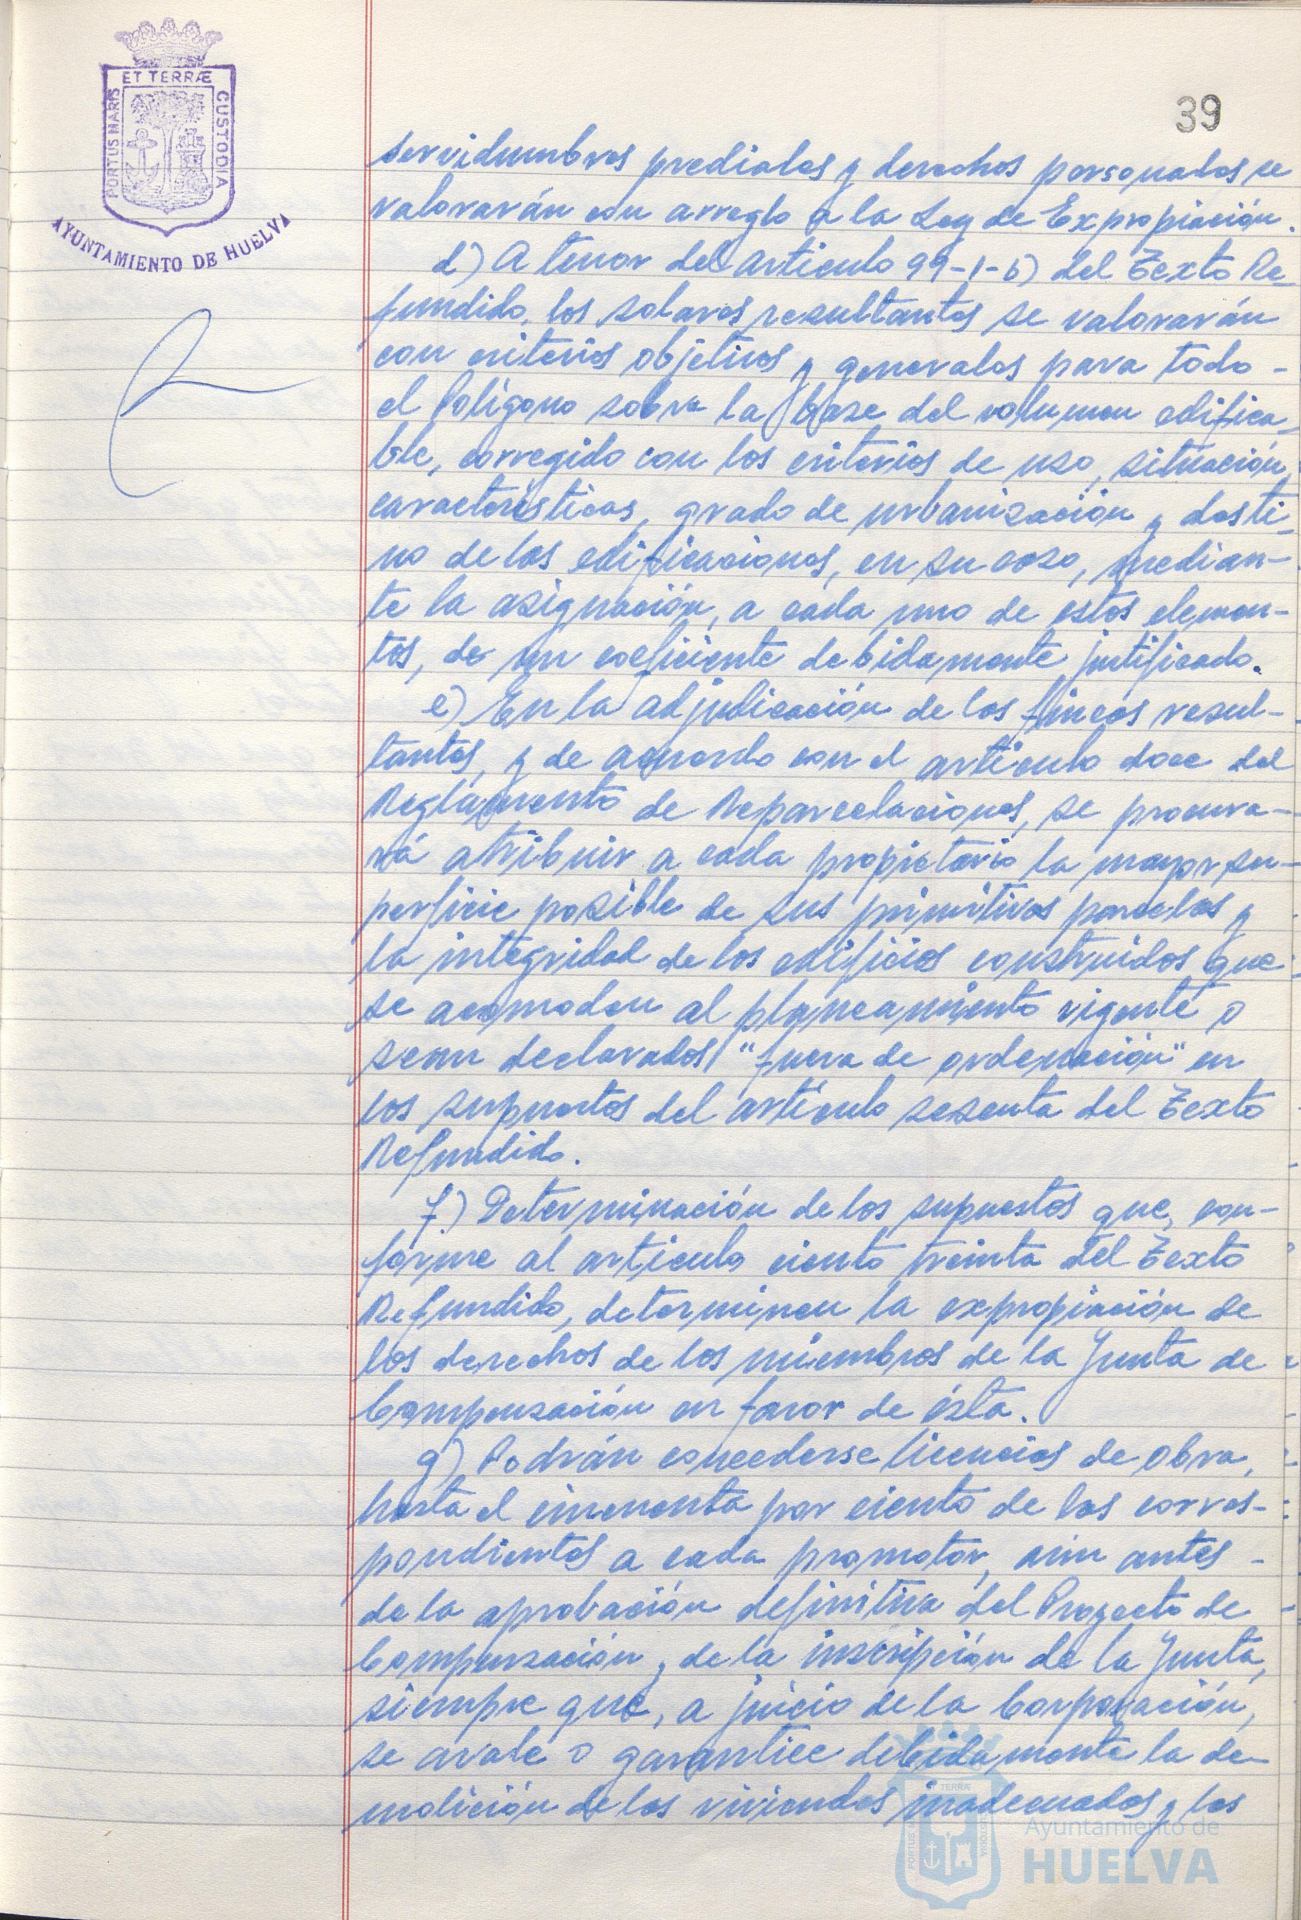 ET TERRÆ
PORTUS MARIS
CUSTODIA
AYUNTAMIENTO DE HUELVA
39
servidumbres prediales y derechos personales se
valorarán con arreglo a la Ley de Expropiación.
d) A tenor del artículo 99-1-b) del Texto Re-
fundido, los solares resultantes se valorarán
con criterios objetivos y generales para todo -
el Polígono sobre la base del volumen edifica-
ble, corregido con los criterios de uso, situación,
características, grado de urbanización y desti-
no de las edificaciones, en su caso, median-
te la asignación, a cada uno de estos elemen-
tos, de un coeficiente debidamente justificado.
e) En la adjudicación de las fincas resul-
tantes, y de acuerdo con el artículo doce del
Reglamento de Reparcelaciones, se procura-
rá atribuir a cada propietario la mayor su-
perficie posible de sus primitivas parcelas y
la integridad de los edificios construidos que
se acomoden al planeamiento vigente o
sean declarados "fuera de ordenación" en
los supuestos del artículo sesenta del Texto
Refundido.
f) Determinación de los supuestos que, con-
forme al artículo ciento treinta del Texto
Refundido, determinen la expropiación de
los derechos de los miembros de la Junta de
Compensación en favor de ésta.
g) Podrán concederse licencias de obra,
hasta el cincuenta por ciento de las corres-
pondientes a cada promotor, aún antes -
de la aprobación definitiva del Proyecto de
Compensación y de la inscripción de la Junta,
siempre que, a juicio de la Corporación,
se avale o garantice debidamente la de-
molición de las viviendas inadecuadas y las
TERRÆ
Ayuntamiento de
HUELVA